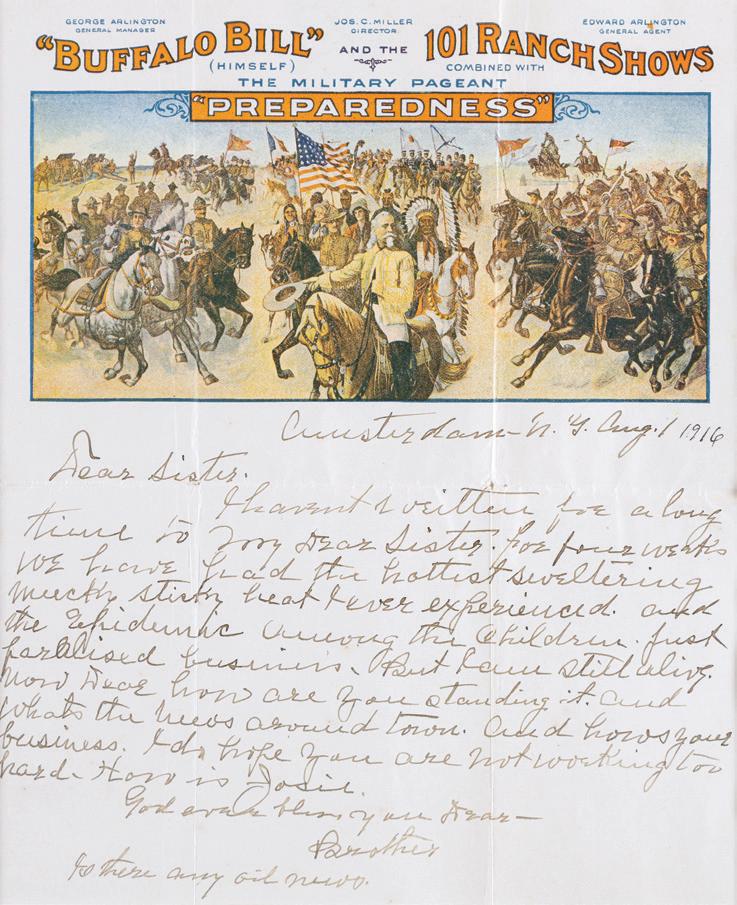 GEORGE ARLINGTON
GENERAL MANAGER
JOS. C. MILLER
DIRECTOR
EDWARD ARLINGTON
GENERAL AGENT
"BUFFALO BILL" AND THE 101 RANCH SHOWS
(HIMSELF)
COMBINED WITH
THE MILITARY PAGEANT
"PREPAREDNESS"
Amsterdam - N.Y. Aug. 1 1916
Dear Sister.
I havent written for a long
time to my Dear Sister. for four weeks
we have had the hottest sweltering
sticky heat I ever experienced. and
the Epidemic among the children. just
business. But I am still alive.
now Dear how are you standing it. and
whats the news around town. and hows your
business. I do hope you are not working too
hard. How is Josie.
God ever bless you Dear -
Brother
Is there any oil news.